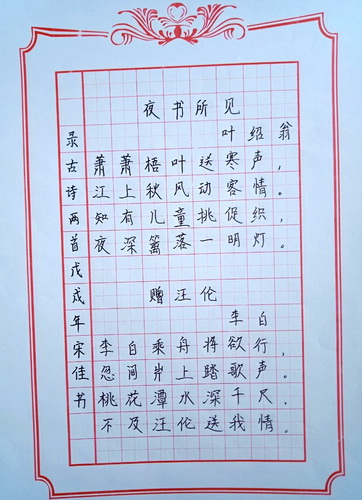 夜书所见
叶绍翁
萧萧梧叶送寒声,
江上秋风动客情。
知有儿童挑促织,
夜深篱落一明灯。
赠汪伦
李白
李白乘舟将欲行,
忽闻岸上踏歌声。
桃花潭水深千尺,
不及汪伦送我情。
录古诗两首戊戌年宋佳书